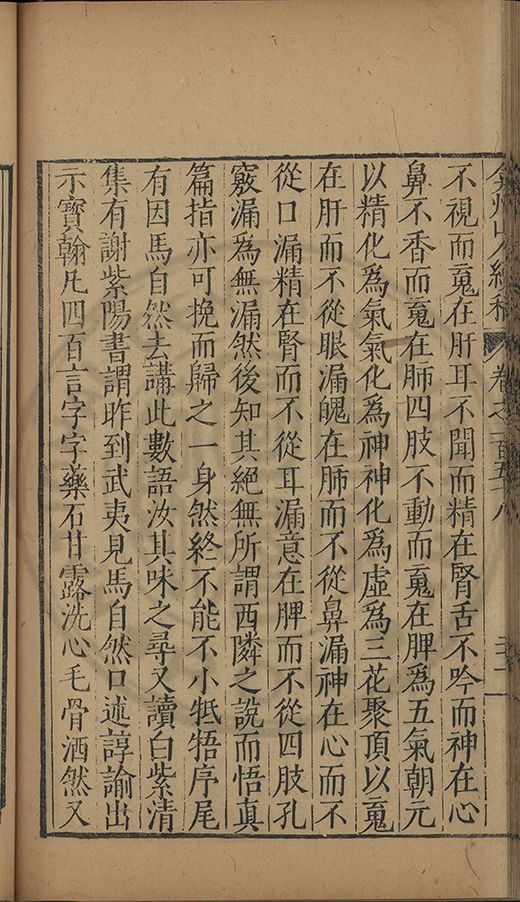 弇州山人續稿 卷之一百五十八
不視而䰟在肝耳不聞而精在腎舌不吟而神在心
鼻不香而䰟在肺四肢不動而䰟在脾爲五氣朝元
以精化爲氣氣化爲神神化爲虛爲三花聚頂以䰟
在肝而不從眼漏魄在肺而不從鼻漏神在心而不
從口漏精在腎而不從耳漏意在脾而不從四肢孔
竅漏爲無漏然後知其絕無所謂西隣之說而悟真
篇指亦可挽而歸之一身然終不能不小牴牾序尾
有因馬自然去講此數語汝其味之尋又讀白紫清
集有謝紫陽書謂昨到武夷見馬自然口述諄諭出
示寶翰凡四百言字字藥石甘露洗心毛骨洒然又